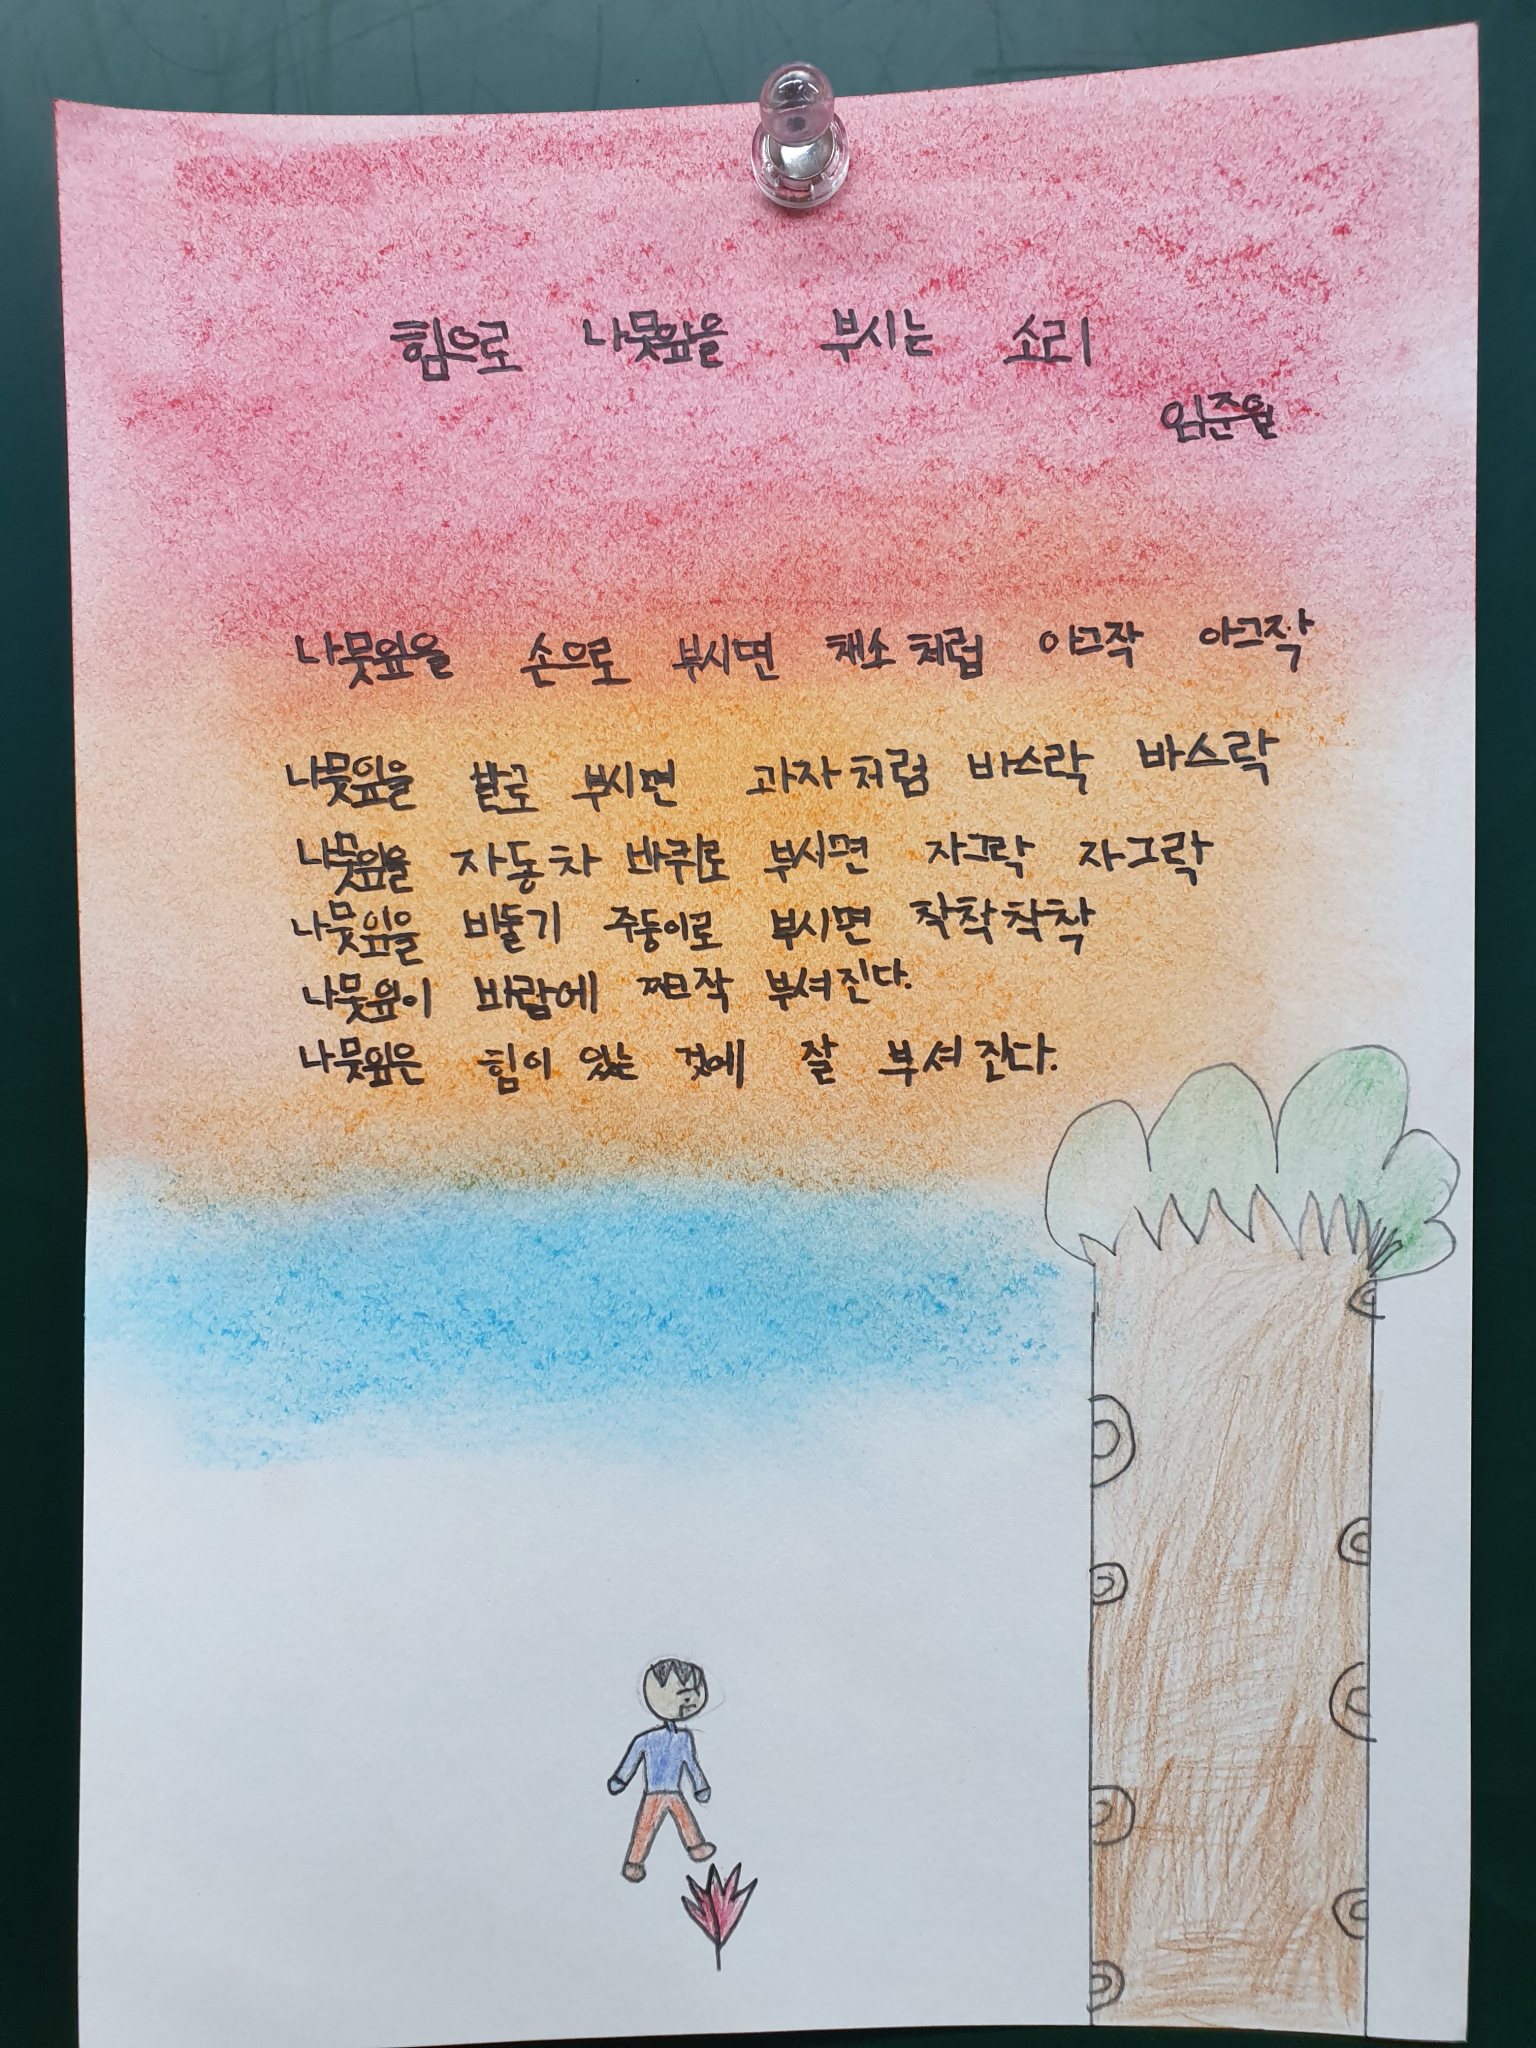 힘으로 나뭇잎을 부시는 소리
임준원
나뭇잎을 손으로 부시면 채소처럼 아그작 아그작
나뭇잎을 발로 부시면 과자처럼 바스락 바스락
나뭇잎을 자동차 바퀴로 부시면 자그락 자그락
나뭇잎을 비둘기 주둥이로 부시면 착착착착
나뭇잎이 바람에 쯔작 부셔진다.
나뭇잎은 힘이 있는 것에 잘 부셔진다.